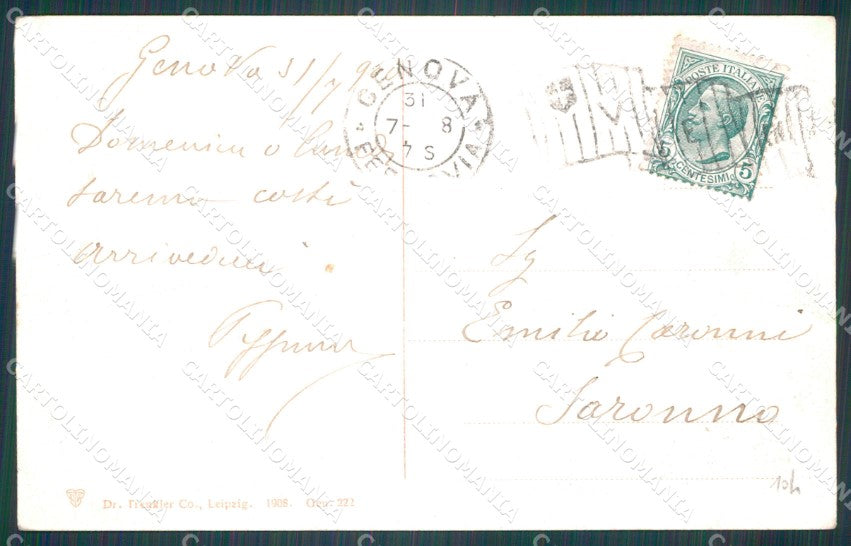 Genova 31/7 908
Domenica o Lun
saremo costì
Arrivederci
GENOVA
31
7- 8
7 S
FERROVIA
POSTE ITALIANE
5 5
CENTESIMI
Sg
Emilio Caronni
Saronno
Dr. Trenkler Co., Leipzig. 1908. Gen. 222
CARTOLINOMANIA